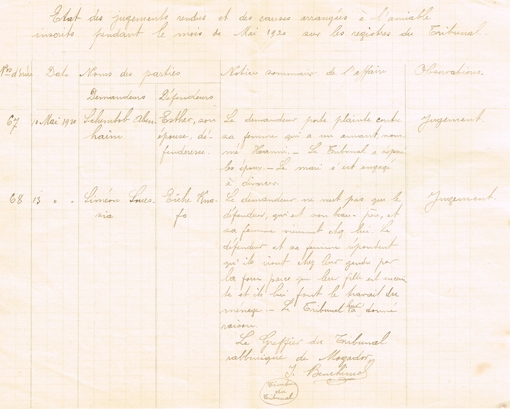 Etat des jugements rendus et des causes arrangées à l'amiable
inscrits pendant le mois de Mai 1920 sur les registres du Tribunal.
Nos d'ordre Date Noms des parties Notices sommaires de l'affaire Observations.
Demandeurs Défendeurs
67 10 Mai 1920 Esther, son Le demandeur porte plainte contre Jugement.
haim épouse, dé- sa femme qui a un amant nom-
fenderesse. mé - Le Tribunal a
les époux. - Le mari s'est engagé
à
68 13 " " Siméon Sous- Eiche Kna- Le demandeur ne veut pas que le Jugement.
sia fo défendeur, qui est son beau-père, et
sa femme viennent chez lui. Le
défendeur et sa femme répondent
qu'ils vont chez leur gendre par
la force parce que leur fille est
te et ils lui font le travail du
ménage. - Le Tribunal lui a donné
raison.
Le Greffier du Tribunal
rabbinique de Mogador
J. Benchimol
Timbre
du
Tribunal